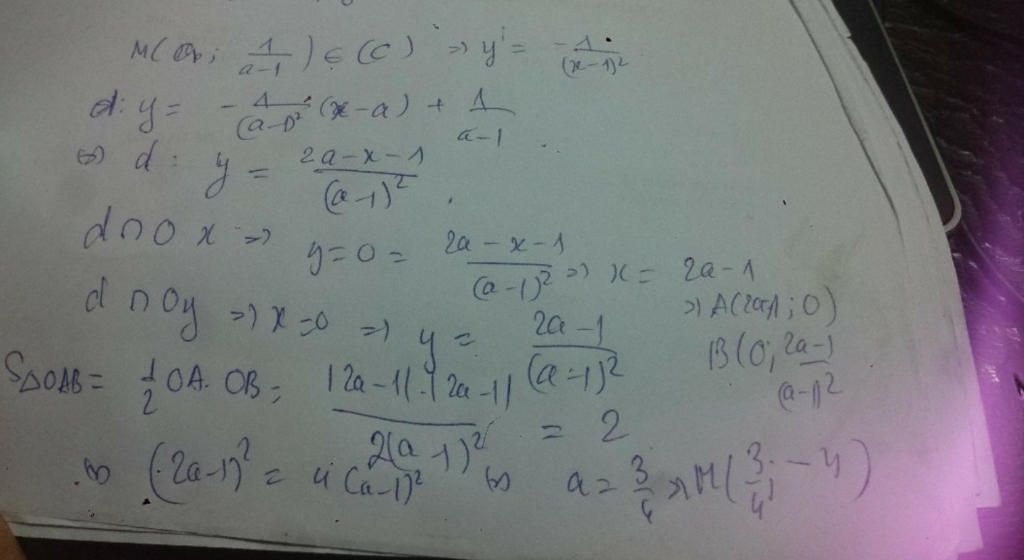 M(a; 1/(a-1)) ∈ (C) => y' = -1/(x-1)²
d: y = -1/(a-1)² (x-a) + 1/(a-1)
<=> d: y = (2a-x-1)/(a-1)²
d ∩ Ox => y=0 = (2a-x-1)/(a-1)² => x = 2a-1
=> A(2a-1; 0)
d ∩ Oy => x=0 => y = (2a-1)/(a-1)²
B(0; (2a-1)/(a-1)²
S△OAB = 1/2 OA.OB = |2a-1|.|2a-1|/2(a-1)² = 2
<=> (2a-1)² = 4(a-1)² <=> a = 3/4 => M(3/4; -4)